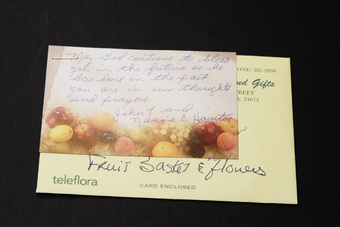 May God continue to bless
you in the future as he
has done in the past.
you are in our thoughts
and prayers.
John T. and
Nannie E. Hairston
ONE: 582-2959
nd Gifts
STREET
A. 24073
Fruit Basket & flowers
teleflora.
CARD ENCLOSED